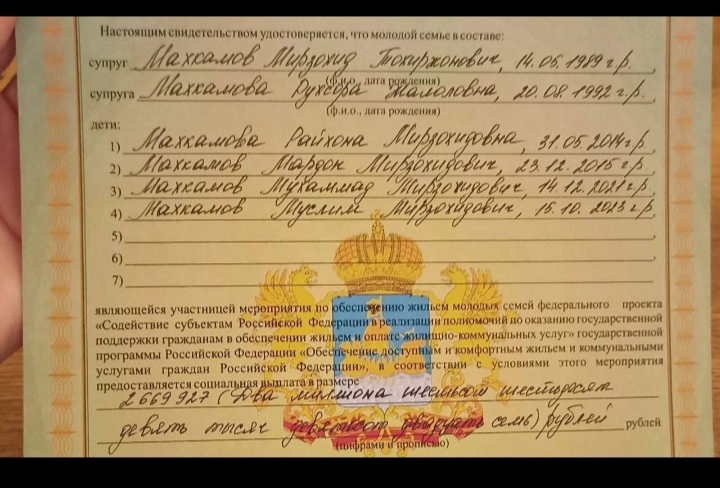 Настоящим свидетельством удостоверяется, что молодой семье в составе:
супруг Махкамов Мирзохид Тохиржонович, 14.05.1989 г.р.,
(ф.и.о., дата рождения)
супруга Махкамова Рухсора Жалоловна, 20.08.1992 г.р.,
(ф.и.о., дата рождения)
дети:
1) Махкамова Райхона Мирзохидовна, 31.05.2014 г.р,
2) Махкамов Мардон Мирзохидович, 23.12.2015 г.р,
3) Махкамов Мухаммад Мирзохидович, 14.12.2021 г.р,
4) Махкамов Муслим Мирзохидович, 15.10.2023 г.р,
5) ,
6) ,
7) ,
являющейся участницей мероприятия по обеспечению жильем молодых семей федерального проекта
«Содействие субъектам Российской Федерации в реализации полномочий по оказанию государственной
поддержки гражданам в обеспечении жильем и оплате жилищно-коммунальных услуг» государственной
программы Российской Федерации «Обеспечение доступным и комфортным жильем и коммунальными
услугами граждан Российской Федерации», в соответствии с условиями этого мероприятия
предоставляется социальная выплата в размере
2 669 927 (Два миллиона шестьсот шестьдесят
девять тысяч девятьсот двадцать семь) рублей рублей
(цифрами и прописью)